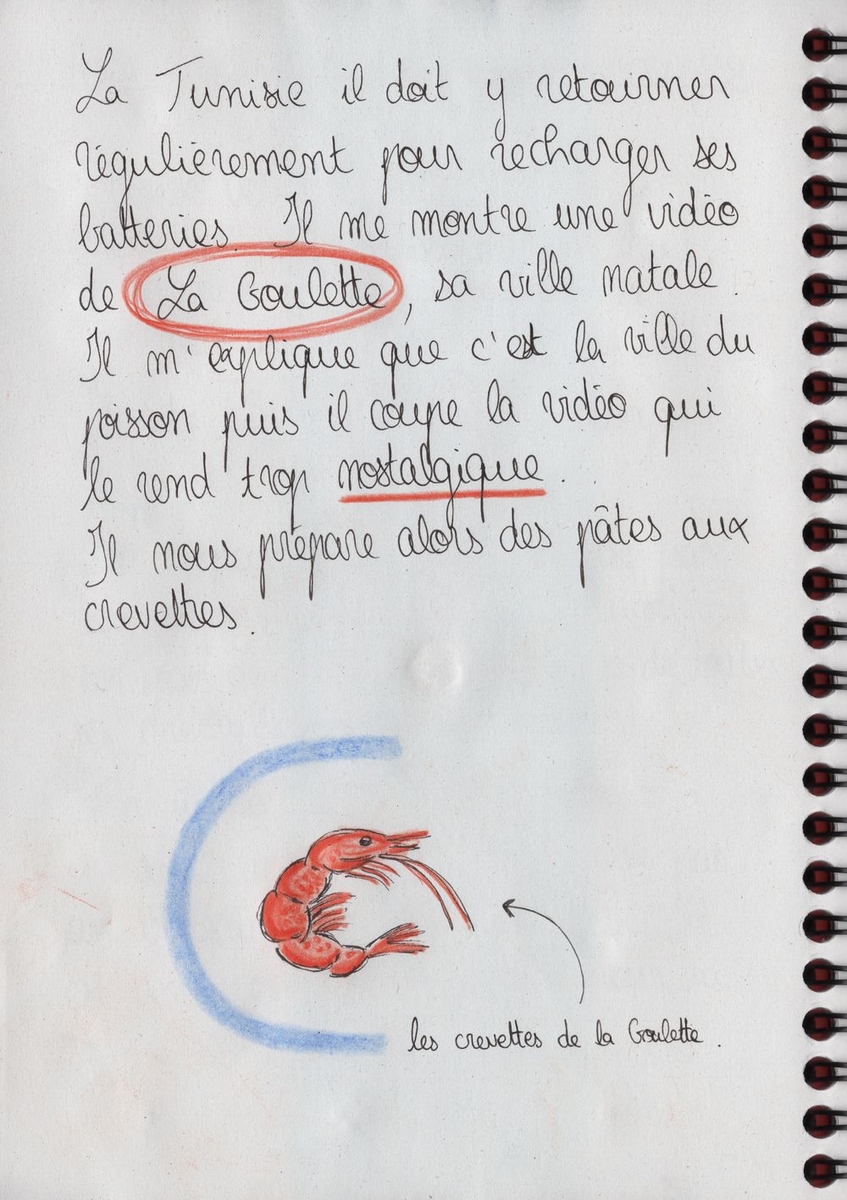 La Tunisie il doit y retourner
régulièrement pour recharger ses
batteries. Il me montre une vidéo
de La Goulette, sa ville natale.
Il m'explique que c'est la ville du
poisson puis il coupe la vidéo qui
le rend trop nostalgique.
Il nous prépare alors des pâtes aux
crevettes.
les crevettes de la Goulette.